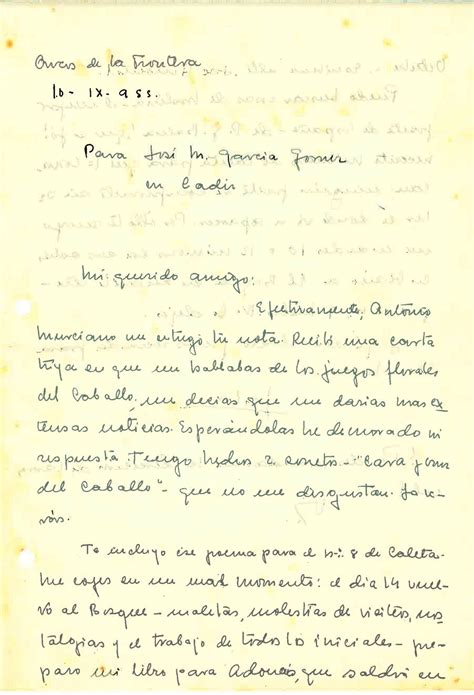 Arcos de la Frontera
10-IX-955.
Para José M. García Gómez
en Cádiz
Mi querido amigo:
Efectivamente, Antonio
Murciano me entregó tu nota. Recibí una carta
tuya en que me hablabas de los juegos florales
del Caballo, me decías que me darías mas ex
tensas noticias. Esperándolas he demorado mi
respuesta. Tengo hechos 2 sonetos - "Cara y cruz
del Caballo" - que no me disgustan. Ya ve-
rás.
Te incluyo ese poema para el nº 8 de Caleta.
Me coges en un mal momento: el día 14 vuel
vo al Bosque - maletas, molestias de visitas, nos
talgias y el trabajo de todos los iniciales - pre-
paro mi libro para Adonais, que saldrá en